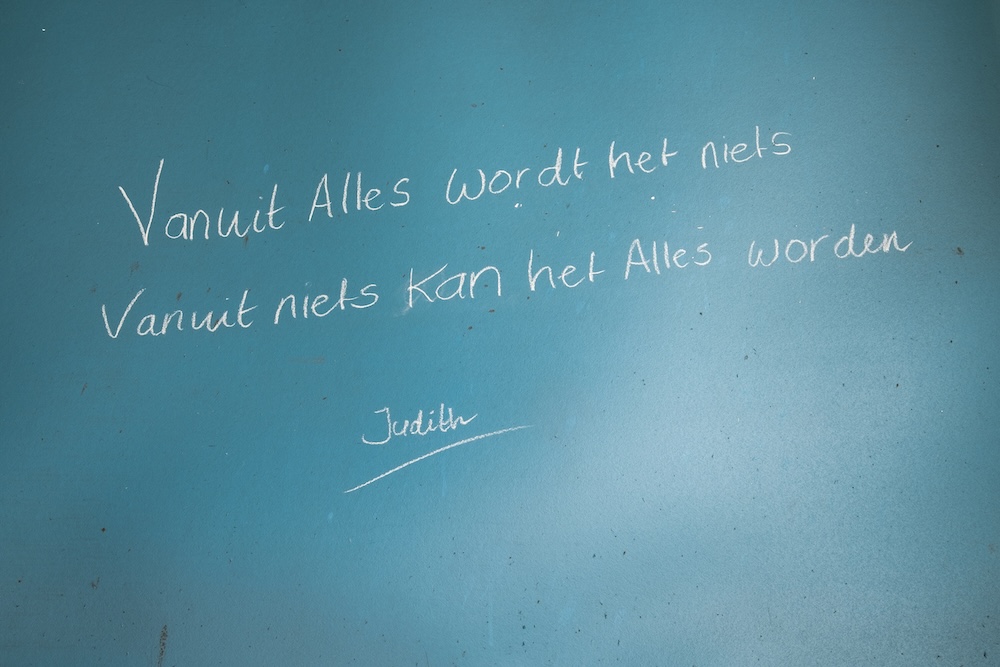 Vanuit Alles wordt het niets
Vanuit niets Kan het Alles worden
Judith